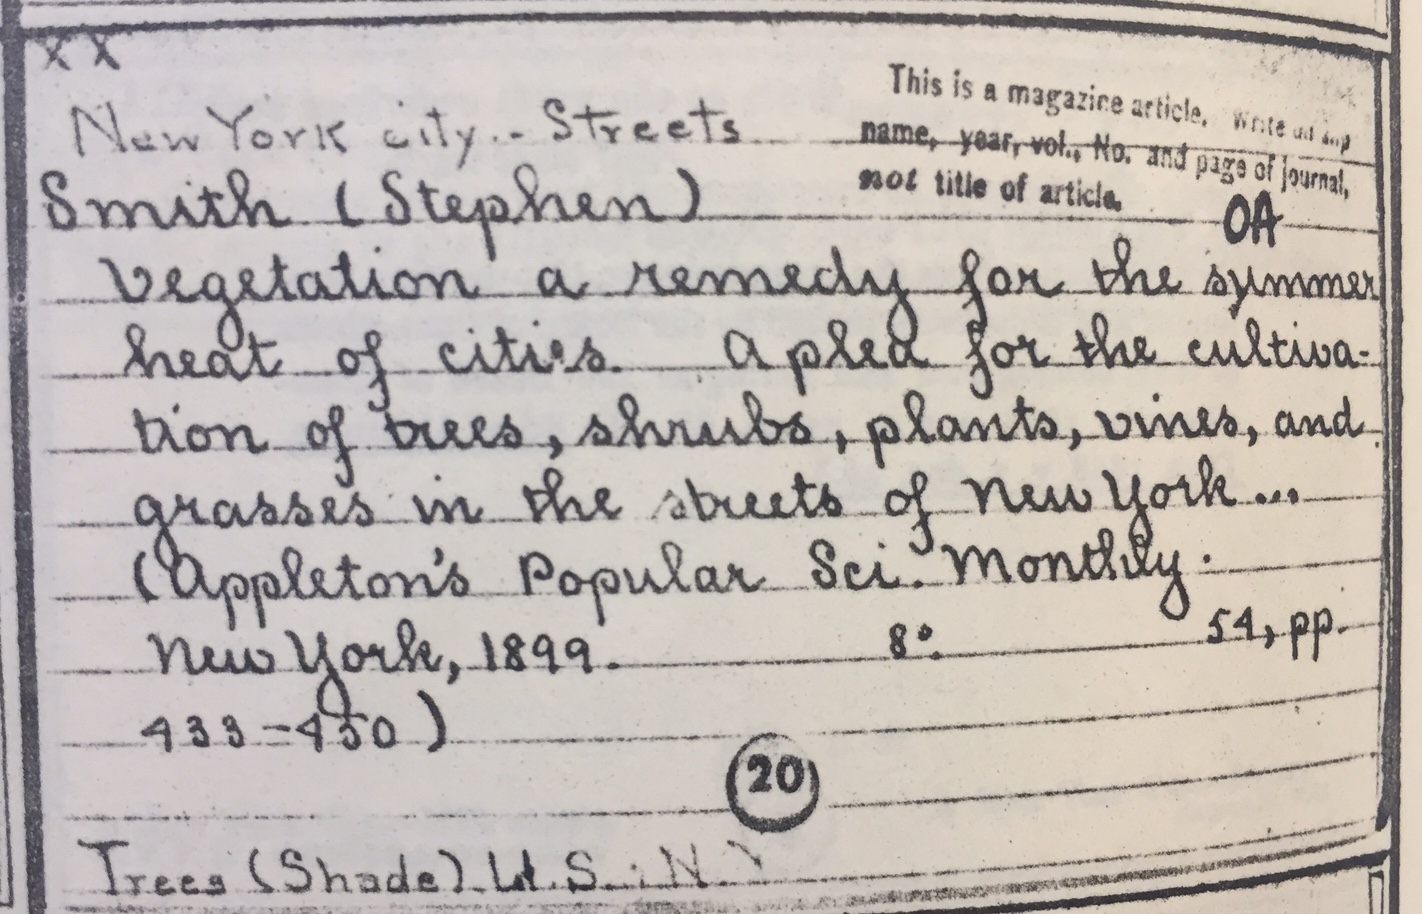 x x
This is a magazine article. Write on top
name, year, vol., No. and page of journal,
not title of article.
New York city.- Streets
Smith (Stephen)
OA
Vegetation a remedy for the summer
heat of cities. A plea for the cultiva-
tion of trees, shrubs, plants, vines, and
grasses in the streets of New York...
(Appleton's Popular Sci. Monthly.
New York, 1899. 8°. 54, pp.
433-450)
20
Trees (Shade). U.S.: N.Y